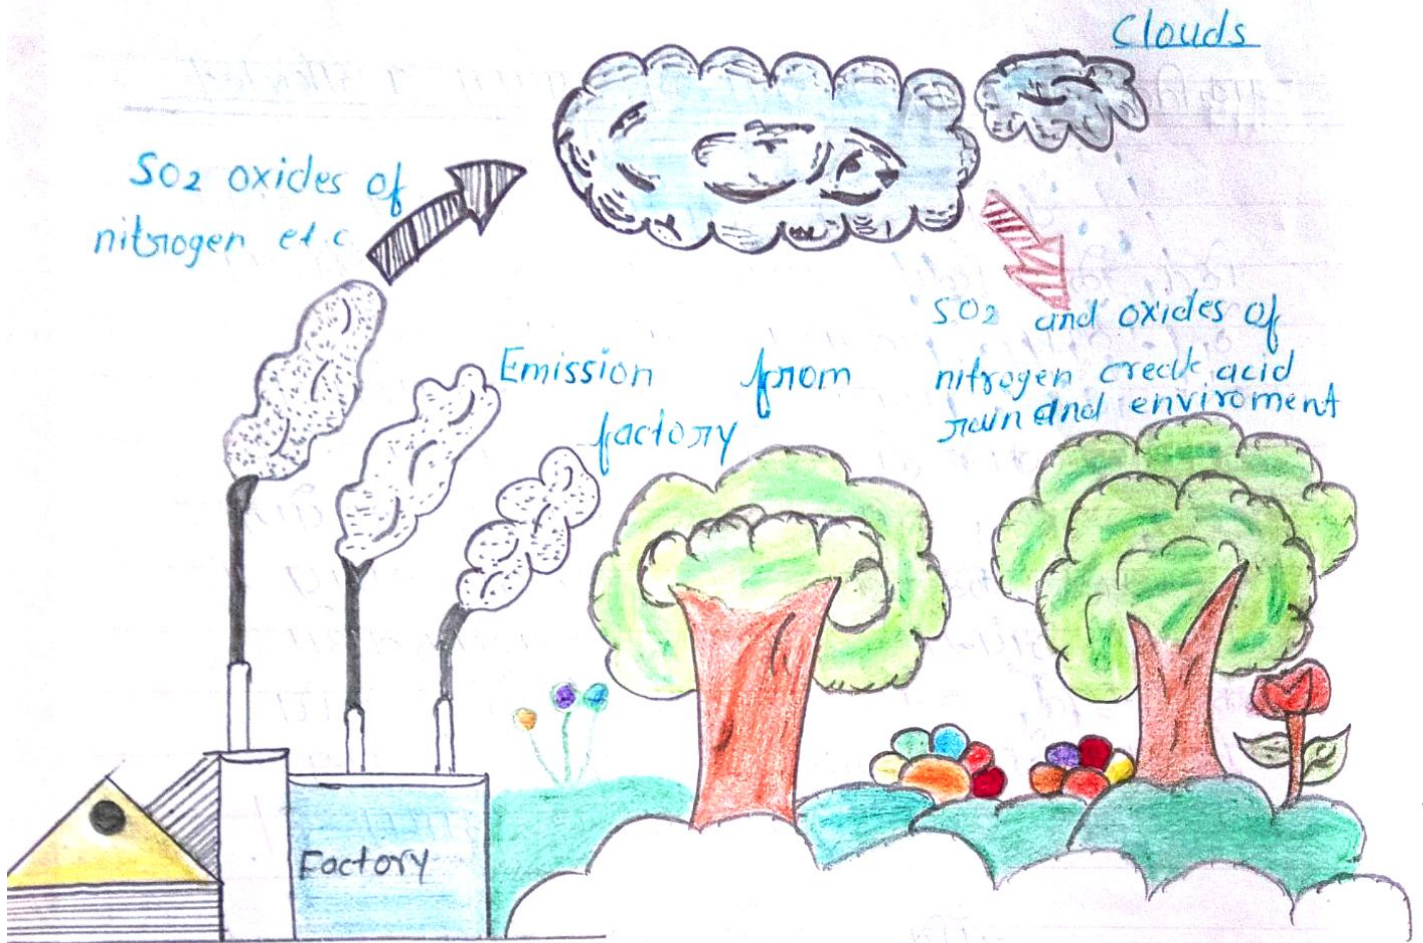 Clouds
SO2 oxides of
nitrogen etc.
SO2 and oxides of
nitrogen create acid
rain and enviroment
Emission from
factory
Factory